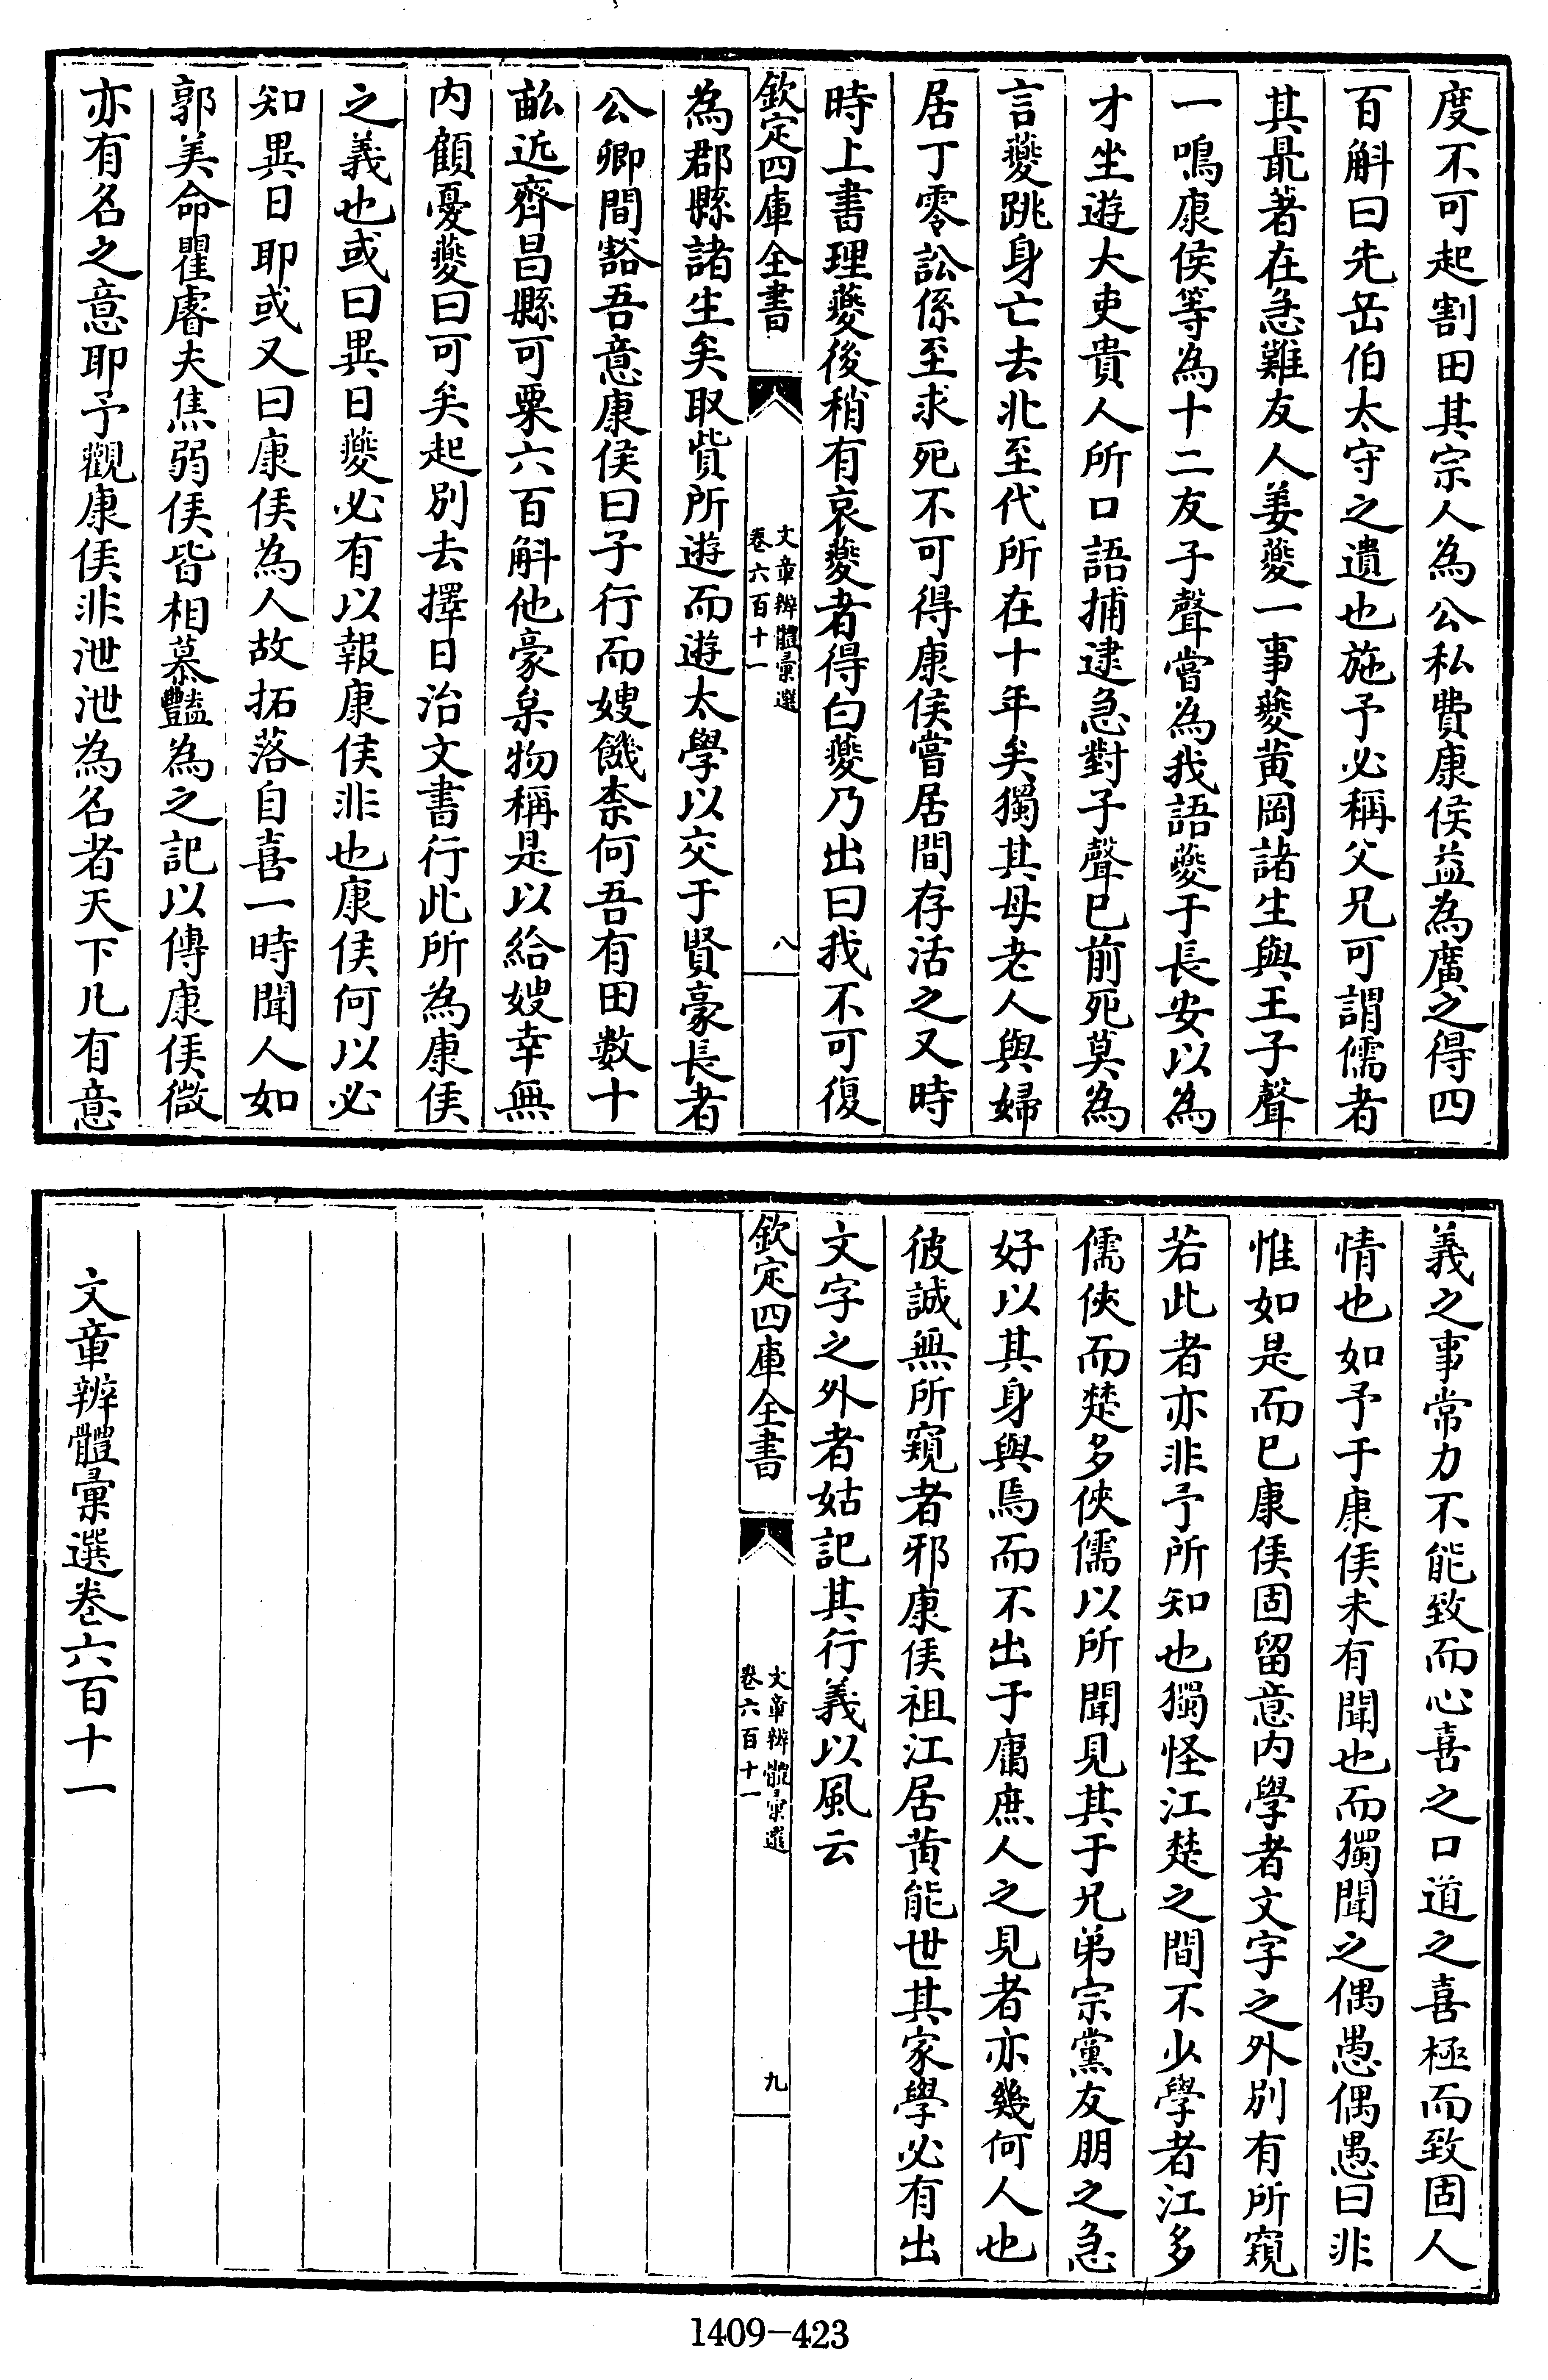 度不可起割田其宗人為公私費康侯益為廣之得四
百斛曰先岳伯太守之遺也施予必稱父兄可謂儒者
其最著在急難友人姜夔一事夔黄岡諸生與王子聲
一鳴康侯等為十二友子聲嘗為我語夔于長安以為
才坐遊大吏貴人所口語捕逮急對子聲已前死莫為
言夔跳身亡去北至代所在十年矣獨其母老人與婦
居丁零訟係至求死不可得康侯嘗居間存活之又時
時上書理夔後稍有哀夔者得白夔乃出曰我不可復
欽定四庫全書
文章辨體彙選
卷六百十一
八
為郡縣諸生矣取貲所遊而遊太學以交于賢豪長者
公卿間豁吾意康侯曰子行而嫂饑柰何吾有田數十
畝近齊昌縣可粟六百斛他豪枲物稱是以給嫂幸無
内顧憂夔曰可矣起別去擇日治文書行此所為康侯
之義也或曰異日夔必有以報康侯非也康侯何以必
知異日耶或又曰康侯為人故拓落自喜一時聞人如
郭美命瞿睿夫焦弱侯皆相慕豔為之記以傳康侯微
亦有名之意耶予觀康侯非泄泄為名者天下凡有意
義之事常力不能致而心喜之口道之喜極而致固人
情也如予于康侯未有聞也而獨聞之偶愚偶愚曰非
惟如是而已康侯固留意内學者文字之外別有所窺
若此者亦非予所知也獨怪江楚之間不少學者江多
儒俠而楚多俠儒以所聞見其于兄弟宗黨友朋之急
好以其身與焉而不出于庸庶人之見者亦幾何人也
彼誠無所窺者邪康侯祖江居黄能世其家學必有出
文字之外者姑記其行義以風云
欽定四庫全書
文章辨體彙選
卷六百十一
九
文章辨體彙選卷六百十一
1409-423